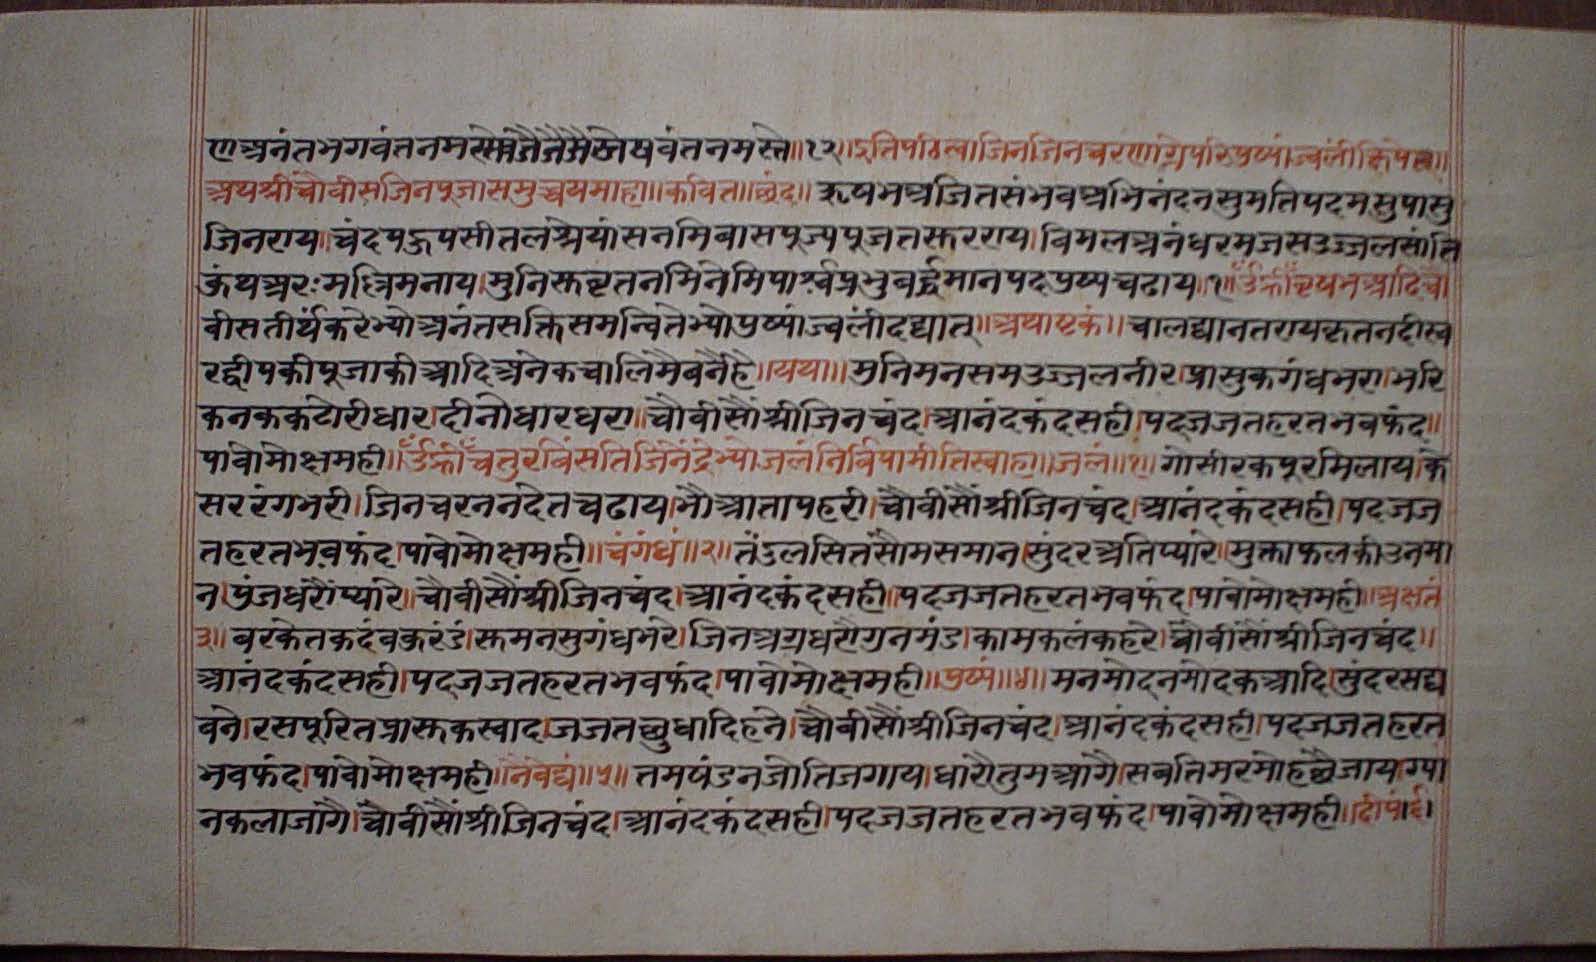 ए अनंत भगवंत नमस्ते जै जै जै श्रेयवंत नमस्ते॥१२॥ इति पठित्वा जिनजिनचरणाग्रे परिपुष्पांज्वलीं क्षिपेत्॥
अथ श्री चौवीसजिनपूजासमुच्चयमाहा॥ कवित॥ छंद॥ ऋषभ अजित संभव अभिनंदन सुमति पदम सुपासु
जिनराय। चंद पहुप सीतल श्रेयांस नमि बासपूज्य पूजत सुरराय। विमल अनंत धरम जस उज्जल सांति
कुंथ अरः मल्लि मनाय। मुनिसुव्रत नमि नेमि पार्श्व प्रभु बर्द्धमान पद पुष्प चढाय॥१॥ उँ ह्रीँ वृषभआदि चौ
बीसतीर्थंकरेभ्यो अनंतसक्तिसमन्वितेभ्यो पुष्पांज्वलीं दद्यात्॥ अथाष्टकं॥ चाल द्यानतराय कृत नंदीस्व
रद्वीप की पूजा की आदि अनेक चालि मै बनै है॥ यथा॥ मुनि मन सम उज्जल नीर। प्रासुक गंध भरा। भरि
कनक कटोरी धार। दीनो धार धरा। चौवीसौं श्रीजिनचंद। आनंदकंद सही। पद जजत हरत भवफंद॥
पावो मोक्ष मही॥ उँ ह्रीँ चतुरविंसति जिनेंद्रेभ्यो जलं निर्विपामीति स्वाहा॥ जलं॥१॥ गोसीर कपूर मिलाय। के
सर रंग भरी। जिन चरनन देत चढाय। भौ आताप हरी। चौवीसौं श्रीजिनचंद। आनंदकंद सही। पद जज
त हरत भवफंद। पावो मोक्ष मही॥ चंगंधं॥२॥ तंडुल सित सोम समान। सुंदर अति प्यारे। मुक्ताफल की उनमा
न। पुंज धरौं प्यारे। चौवीसौं श्रीजिनचंद। आनंदकंद सही। पद जजत हरत भवफंद। पावो मोक्ष मही॥ अक्षतं
३॥ बरकेत कदंब करंडं। सुमन सुगंध भरे। जिन अग्र धरौ गुनमंड। काम कलंक हरे। चौवीसौं श्रीजिनचंद॥
आनंदकंद सही। पद जजत हरत भवफंद। पावो मोक्ष मही॥ पुष्पं॥४॥ मनमोदन मोदक आदि। सुंदर सद्य
बने। रसपूरित प्रासुक स्वाद। जजत छुधादि हने। चौवीसौं श्रीजिनचंद। आनंदकंद सही। पद जजत हरत
भवफंद। पावो मोक्ष मही॥ नैवेद्यं॥५॥ तमषंडन जोति जगाय। धारौ तुम आगै। सब तिमर मोह छै जाय। ग्या
न कला जागै। चौवीसौं श्रीजिनचंद। आनंदकंद सही। पद जजत हरत भवफंद। पावो मोक्ष मही॥ दीपं।६।